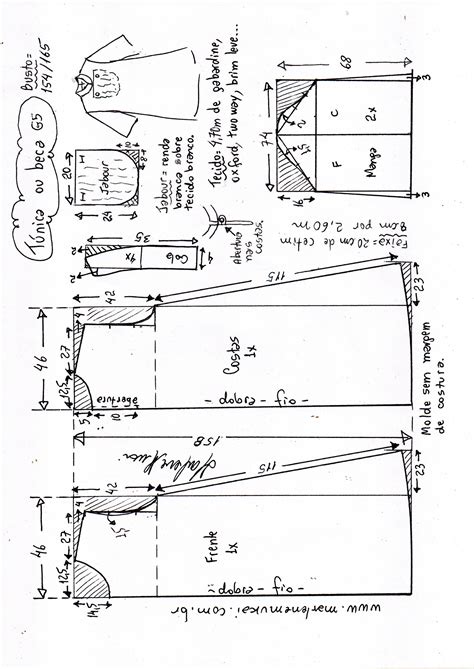 Túnica ou beca G5
busto=
154/165
20
24
10
8
Jabour
Jabour = renda
branca sobre
tecido branco.
Tecido: 4,70m de gabardine,
oxford, two way, brim leve...
68
74
16
2
1,5
C
F
2x
Manga
3
3
Faixa = 20 cm de cetim
8cm por 2,60m
35
2
2
4
Gola
4x
Abertura
nas
costas.
42
115
23
46
4
27
12,5
5
10
abertura
Costas
1x
- dobra - fio -
Molde sem margem
de costura.
158
Marlene Mukai
42
115
23
46
4
27
12,5
14,5
1,5
Frente
1x
- dobra - fio -
www.marlenemukai.com.br